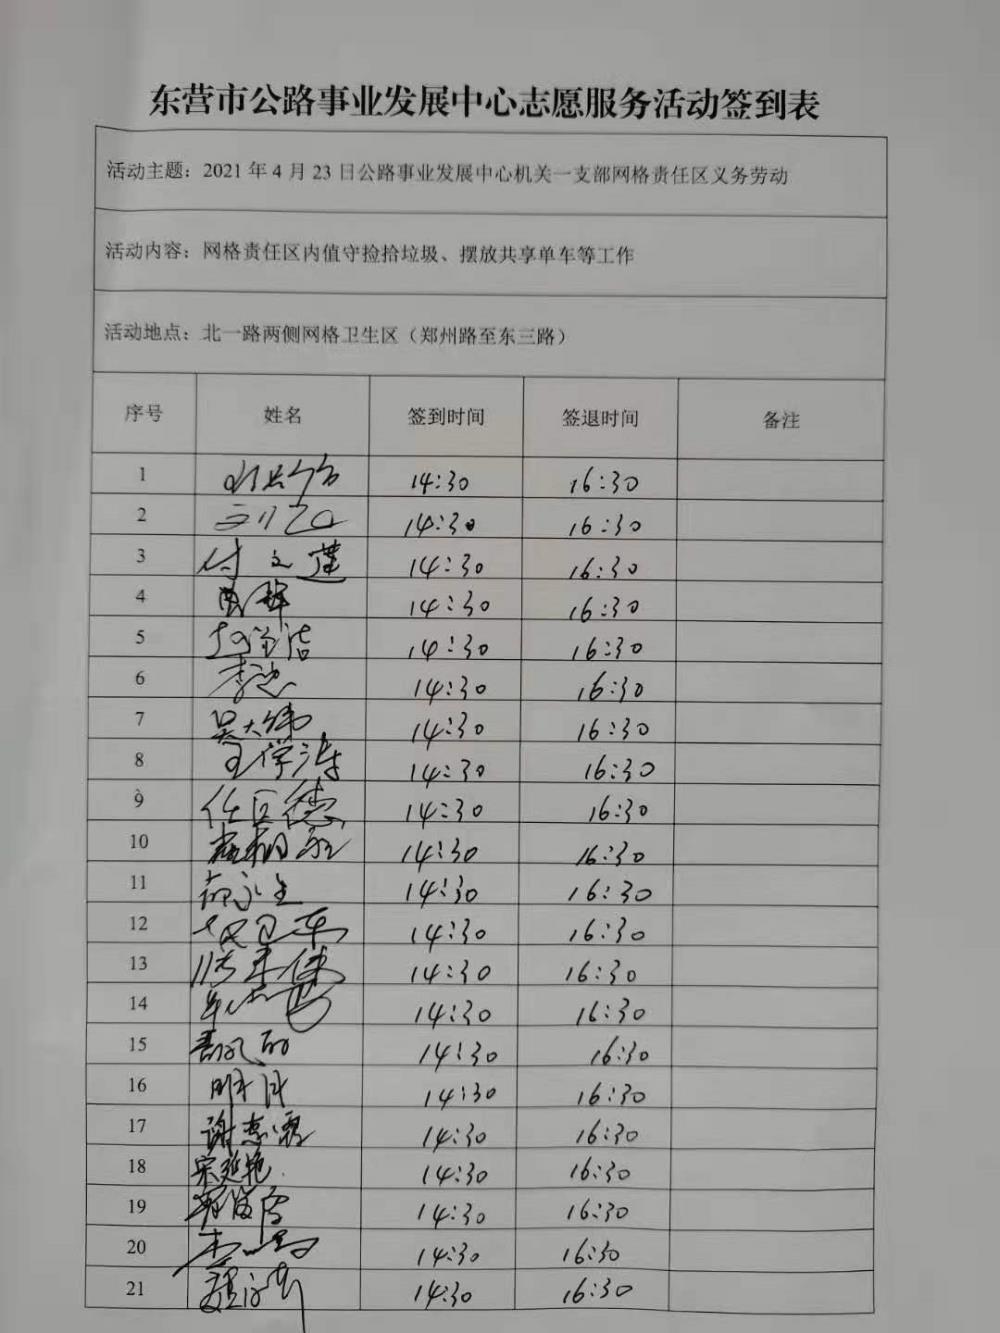 东营市公路事业发展中心志愿服务活动签到表
活动主题：2021 年 4 月 23 日公路事业发展中心机关一支部网格责任区义务劳动
活动内容：网格责任区内值守捡拾垃圾、摆放共享单车等工作
活动地点：北一路两侧网格卫生区（郑州路至东三路）
序号 姓名 签到时间 签退时间 备注
1 14:30 16:30
2 14:30 16:30
3 付文莲 14:30 16:30
4 14:30 16:30
5 14:30 16:30
6 李忠 14:30 16:30
7 吴大伟 14:30 16:30
8 王学涛 14:30 16:30
9 任区德 14:30 16:30
10 14:30 16:30
11 14:30 16:30
12 14:30 16:30
13 14:30 16:30
14 14:30 16:30
15 14:30 16:30
16 明月 14:30 16:30
17 谢志霞 14:30 16:30
18 宋延艳 14:30 16:30
19 14:30 16:30
20 14:30 16:30
21 14:30 16:30